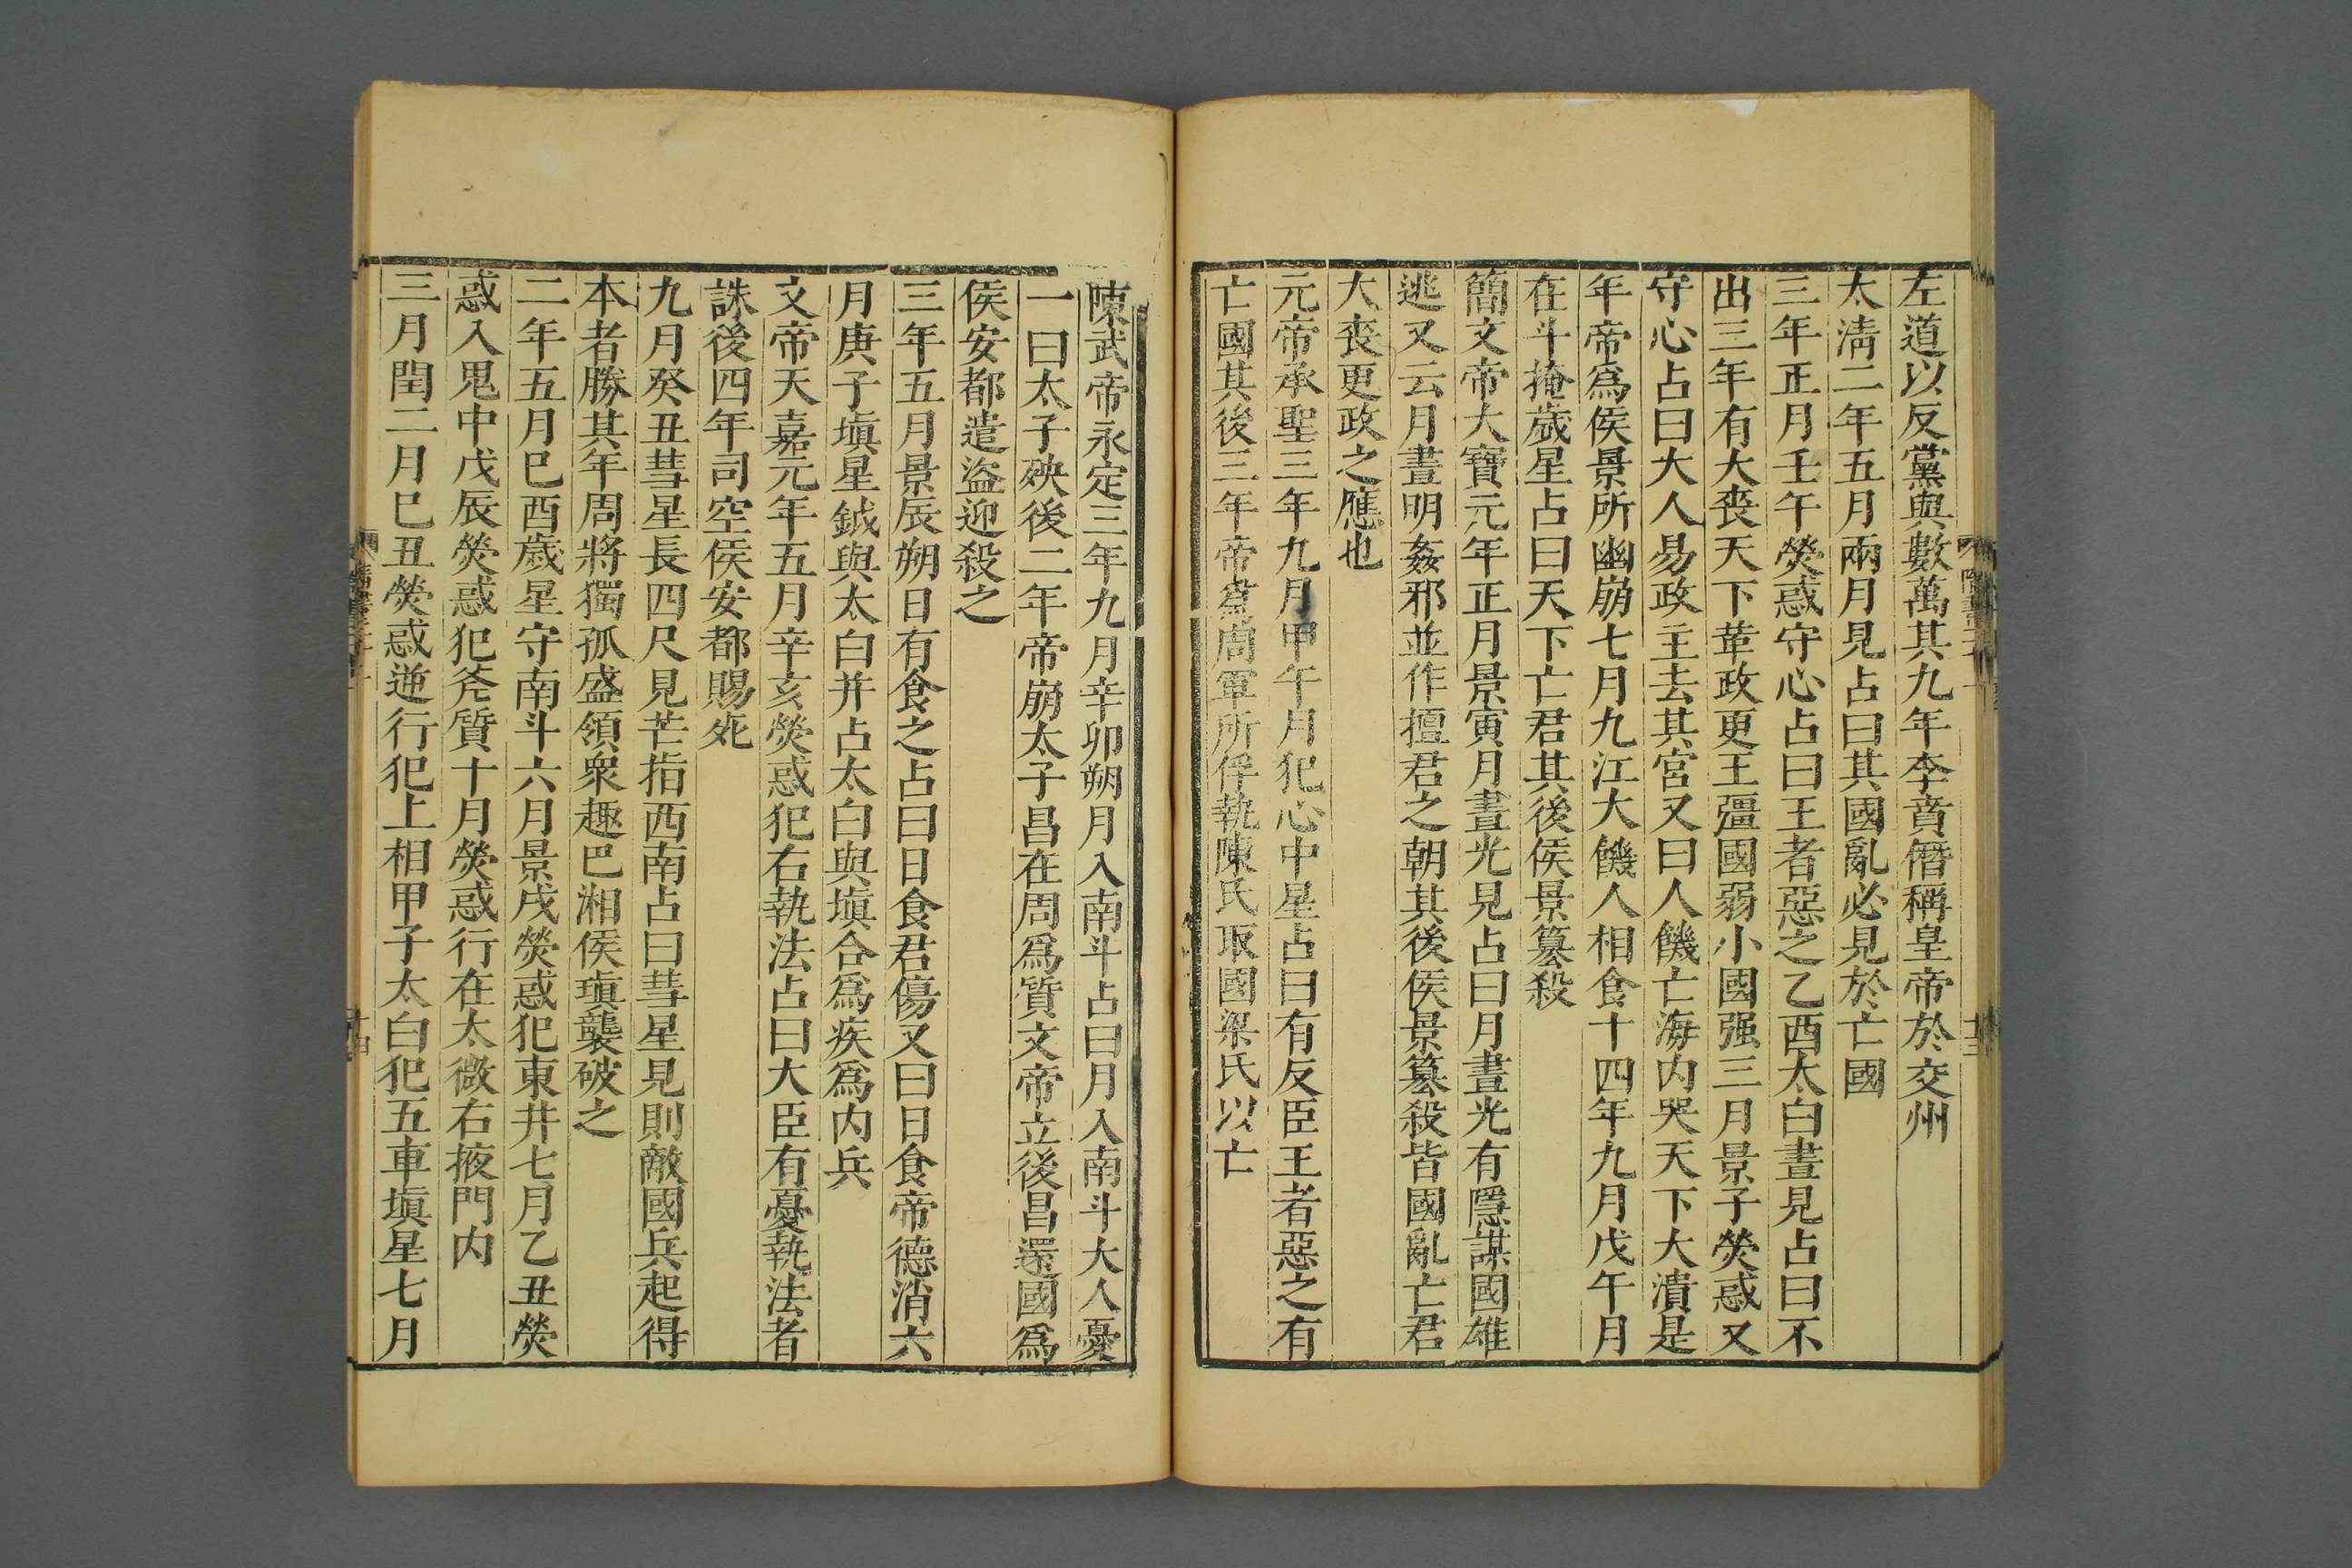 左道以反黨與數萬其九年李賁僭稱皇帝於交州
太淸二年五月兩月見占曰其國亂必見於亡國
三年正月壬午熒惑守心占曰王者惡之乙酉太白晝見占曰不
出三年有大喪天下革政更王彊國弱小國强三月景子熒惑又
守心占曰大人易政主去其宮又曰人饑亡海内哭天下大潰是
年帝爲侯景所幽崩七月九江大饑人相食十四年九月戊午月
在斗掩歲星占曰天下亡君其後侯景簒殺
簡文帝大寶元年正月景寅月晝光見占曰月晝光有隱謀國雄
逃又云月晝明姦邪並作擅君之朝其後侯景簒殺皆國亂亡君
大喪更政之應也
元帝承聖三年九月甲午月犯心中星占曰有反臣王者惡之有
亡國其後三年帝爲周軍所俘執陳氏取國梁氏以亡
陳武帝永定三年九月辛卯朔月入南斗占曰月入南斗大人憂
一曰太子殃後二年帝崩太子昌在周爲質文帝立後昌還國爲
侯安都遣盜迎殺之
三年五月景辰朔日有食之占曰日食君傷又曰日食帝德消六
月庚子塡星鉞與太白并占太白與塡合爲疾爲内兵
文帝天嘉元年五月辛亥熒惑犯右執法占曰大臣有憂執法者
誅後四年司空侯安都賜死
九月癸丑彗星長四尺見芒指西南占曰彗星見則敵國兵起得
本者勝其年周將獨孤盛領衆趣巴湘侯瑱襲破之
二年五月巳酉歲星守南斗六月景戌熒惑犯東井七月乙丑熒
惑入鬼中戊辰熒惑犯斧質十月熒惑行在太微右掖門内
三月閏二月巳丑熒惑逆行犯上相甲子太白犯五車塡星七月